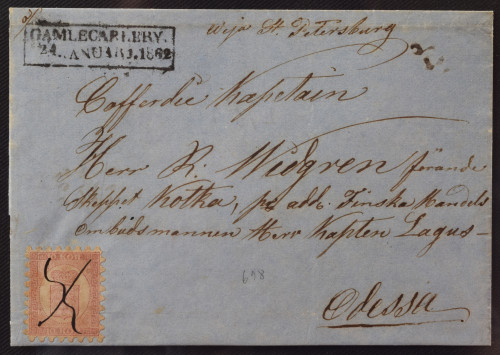 GAMLECARLEBY.
24. JANUARI. 1862
Weja St. Petersburg
Cofferdie Kapetain
Herr R. Widgren förande
Skeppet Kotka, pr add. Finska Handels
ombudsmannen Herr Kapten Lagus-
Odessa
698
10 KOP.